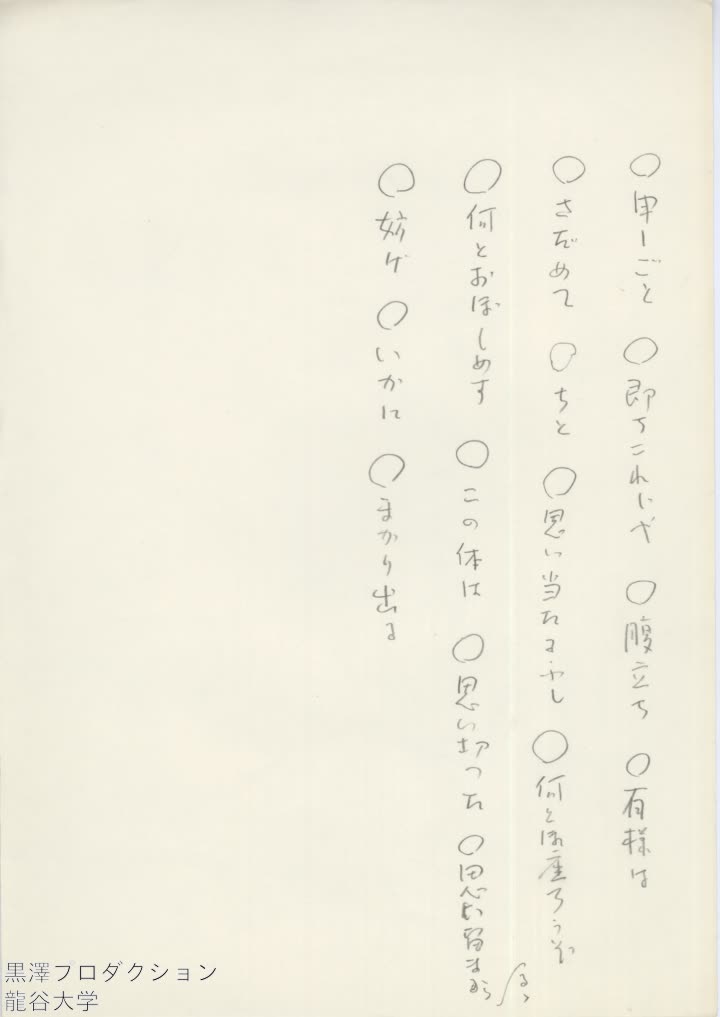 ○申しごと ○即ちこれにて ○腹立ち ○有様は
○さだめて ○ちと ○思い当たるふし ○何とほ座ろうぞ
○何とおぼしめす ○この体は ○思い切った ○思い留まる
○妨ゲ ○いかに ○まかり出る
黒澤プロダクション
龍谷大学